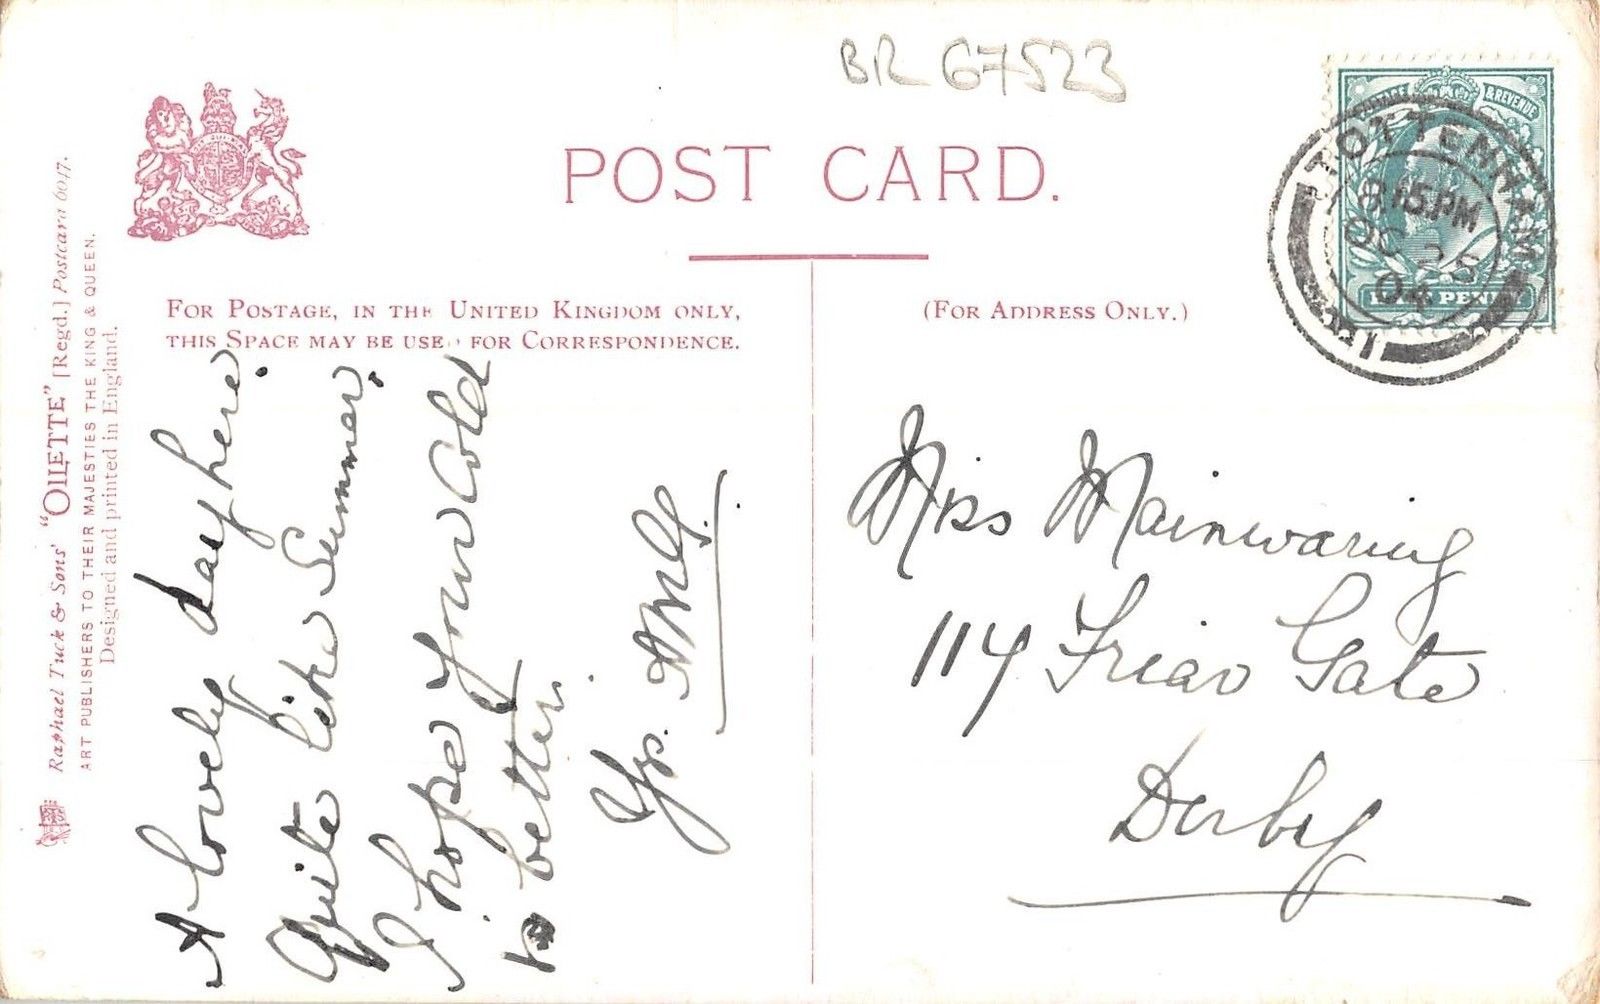 BR 67523
POST CARD.
FOR POSTAGE, IN THE UNITED KINGDOM ONLY,
THIS SPACE MAY BE USED FOR CORRESPONDENCE.
(FOR ADDRESS ONLY.)
POSTAGE & REVENUE
HALF PENNY
TOTTENHAM
8.15 PM
OC 25
04
Raphael Tuck & Sons' "OILETTE" [Regd.] Postcard 6047.
ART PUBLISHERS TO THEIR MAJESTIES THE KING & QUEEN.
Designed and printed in England.
A lovely day here.
Quite like Summer,
I hope your Cold
is better.
Yrs.
Miss Mainwaring
114 Friar Gate
Derby